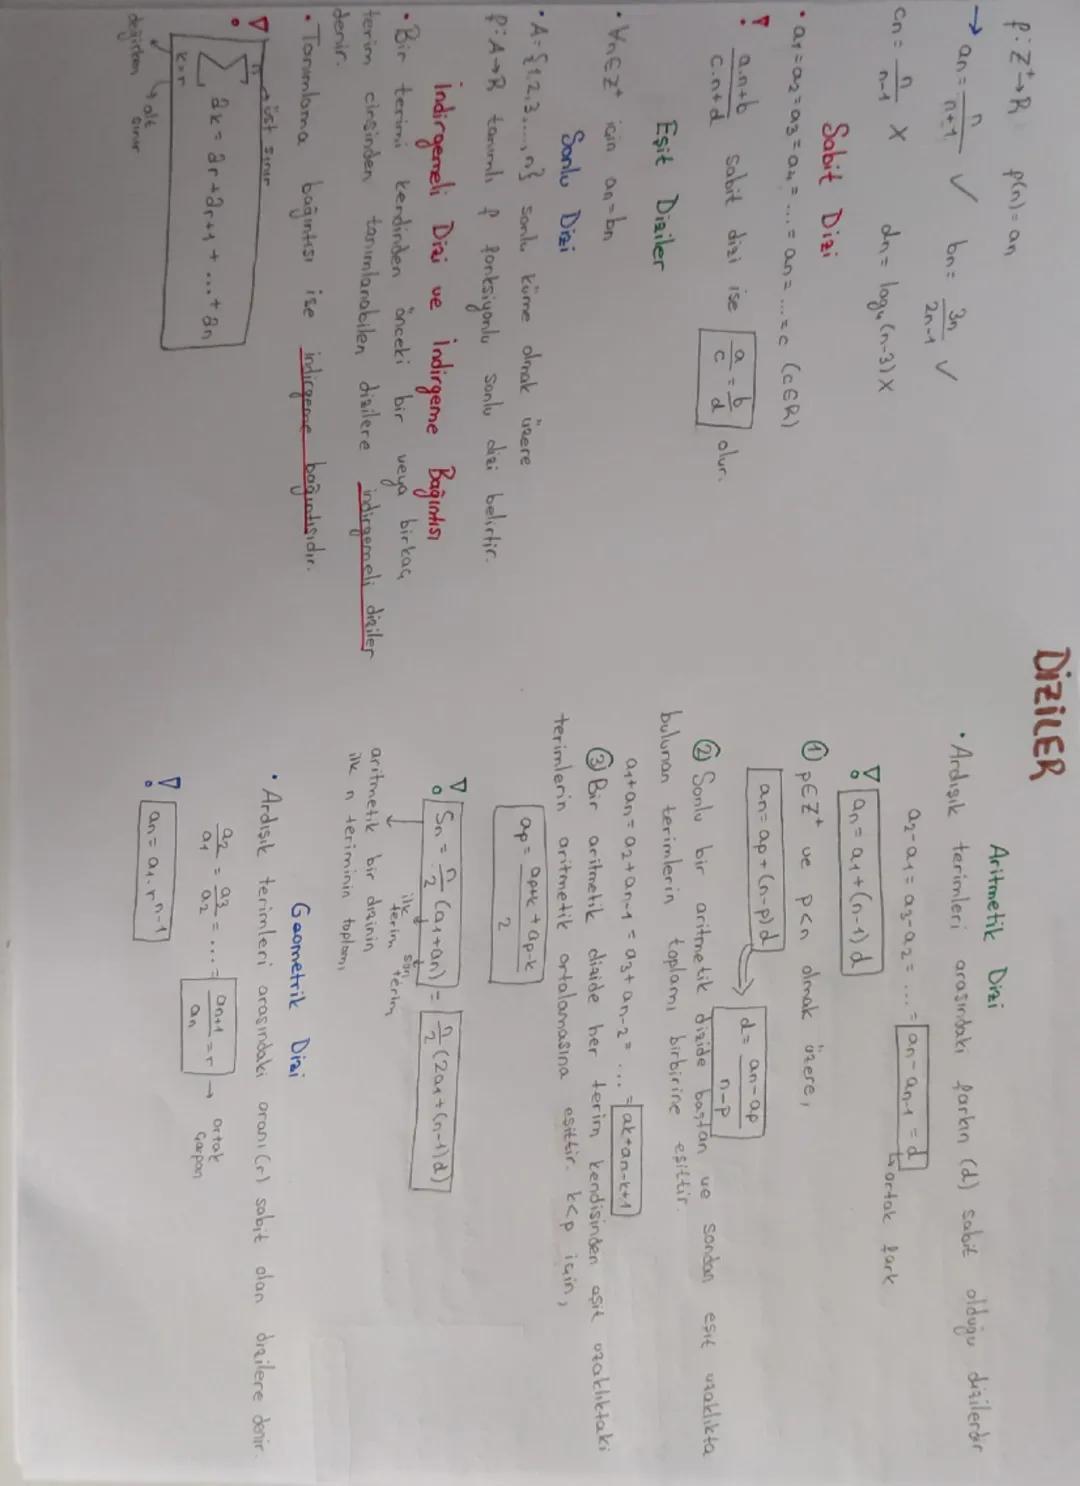 DİZİLER
f: Z⁺→R f(n) = an
→ an = n/(n+1) ✓ bn = 3n/(2n-1) ✓
cn = n/(n-1) X dn = log₄(n-3) X
Sabit Dizi
• a1 = a2 = a3 = a4 = ... = an = ... = c (c∈R)
! (a.n+b)/(c.n+d) sabit dizi ise a/c = b/d olur.
Eşit Diziler
• ∀n∈Z⁺ için an = bn
Sonlu Dizi
• A = {1,2,3,...,n} sonlu küme olmak üzere
f: A→R tanımlı f fonksiyonlu sonlu dizi belirtir.
İndirgemeli Dizi ve İndirgeme Bağıntısı
• Bir terimi kendinden önceki bir veya birkaç
terim cinsinden tanımlanabilen dizilere indirgemeli diziler
denir.
• Tanımlama bağıntısı ise indirgeme bağıntısıdır.
! n → üst sınır
∑ ak = ar + ar+1 + ... + an
k=r
değişken alt sınır
Aritmetik Dizi
• Ardışık terimleri arasındaki farkın (d) sabit olduğu dizilerdir
a2-a1 = a3-a2 = ... = an-an-1 = d
↳ ortak fark
! an = a1 + (n-1)d
① p∈Z⁺ ve p<n olmak üzere,
an = ap + (n-p)d → d = (an-ap)/(n-p)
② Sonlu bir aritmetik dizide baştan ve sondan eşit uzaklıkta
bulunan terimlerin toplamı birbirine eşittir.
a1+an = a2+an-1 = a3+an-2 = ... = ak+an-k+1
③ Bir aritmetik dizide her terim kendisinden eşit uzaklıktaki
terimlerin aritmetik ortalamasına eşittir. k<p için,
ap = (ap+k + ap-k)/2
! Sn = n/2 (a1+an) = n/2 (2a1+(n-1)d)
ilk terim son terim
aritmetik bir dizinin
ilk n teriminin toplamı
Geometrik Dizi
• Ardışık terimleri arasındaki oranı (r) sabit olan dizilere denir.
a2/a1 = a3/a2 = ... = an+1/an = r → ortak çarpan
! an = a1.rⁿ⁻¹